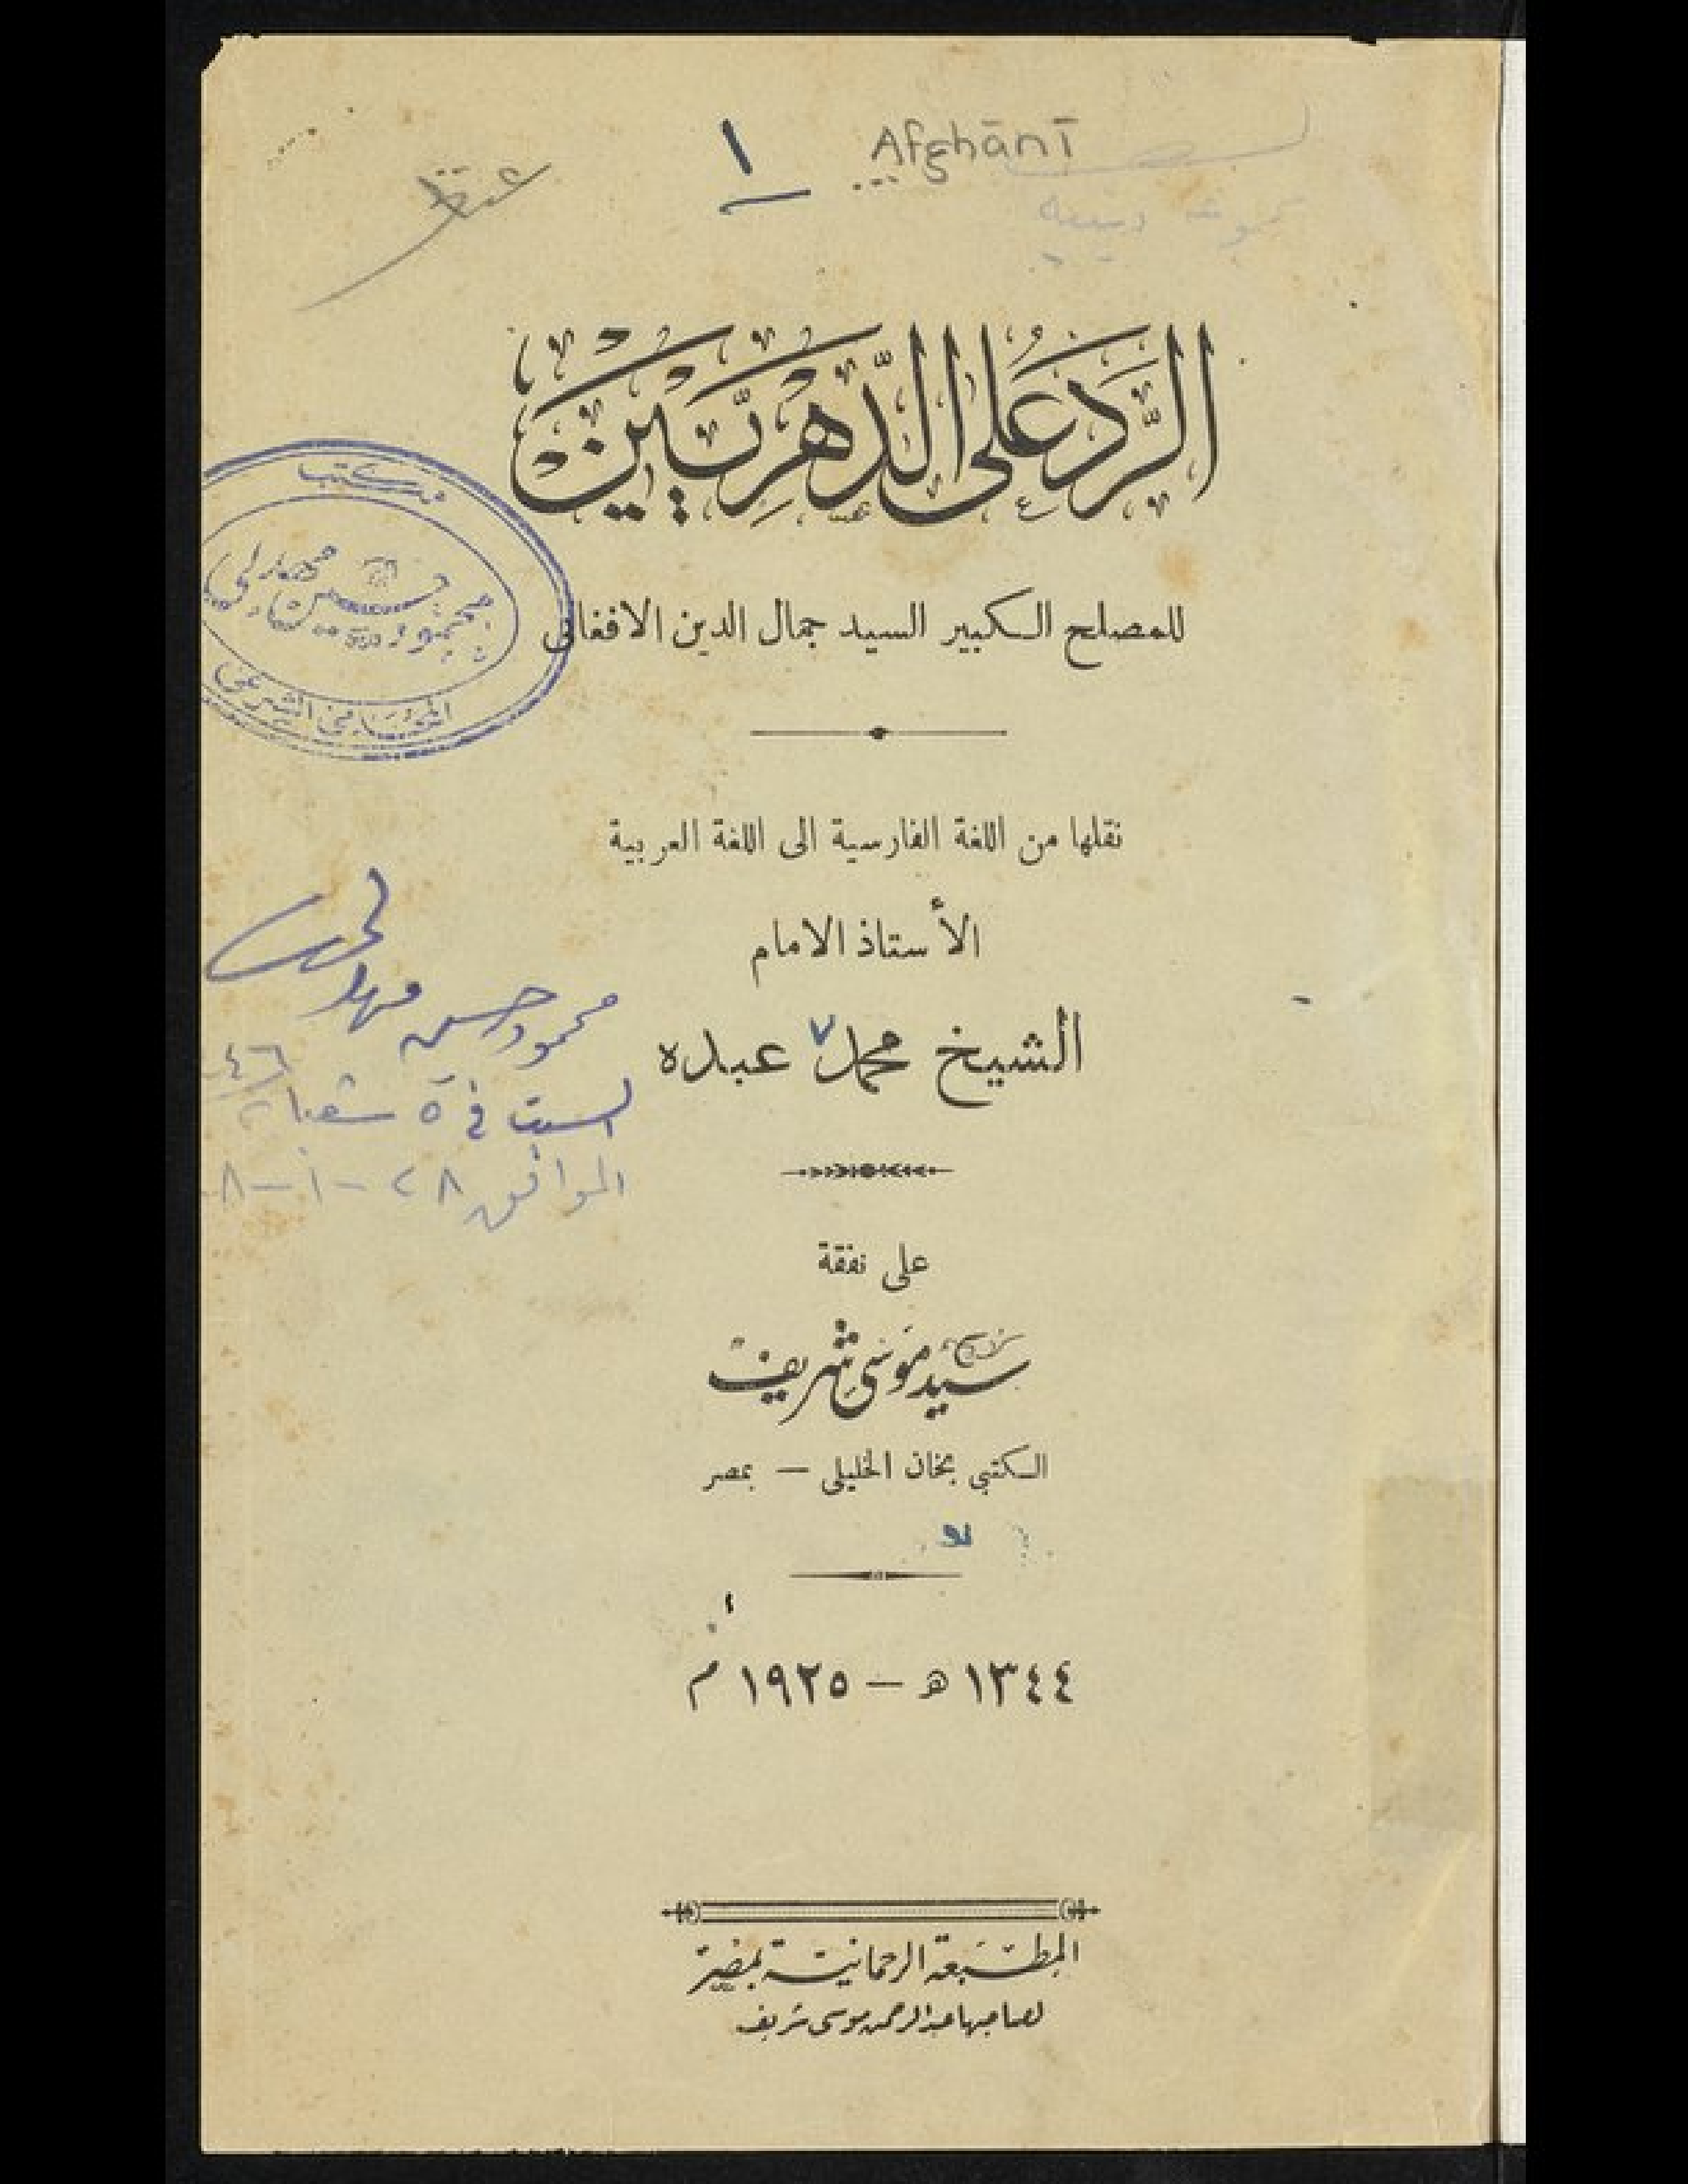 ١ Afghānī
الرَّد عَلى الدّهرِيّين
للمصلح الكبير السيد جمال الدين الافغانى
نقلها من اللغة الفارسية الى اللغة العربية
الأستاذ الامام
الشيخ محمد عبده
محمود حسن
السبت في ٥
الموافق ٢٨ - ١ - ٨
على نفقة
سيد موسى شريف
الكتبي بخان الخليلى — بمصر
١٣٤٤ ه — ١٩٢٥ م
المطبعة الرحمانية بمصر
لصاحبها عبد الرحمن موسى شريف